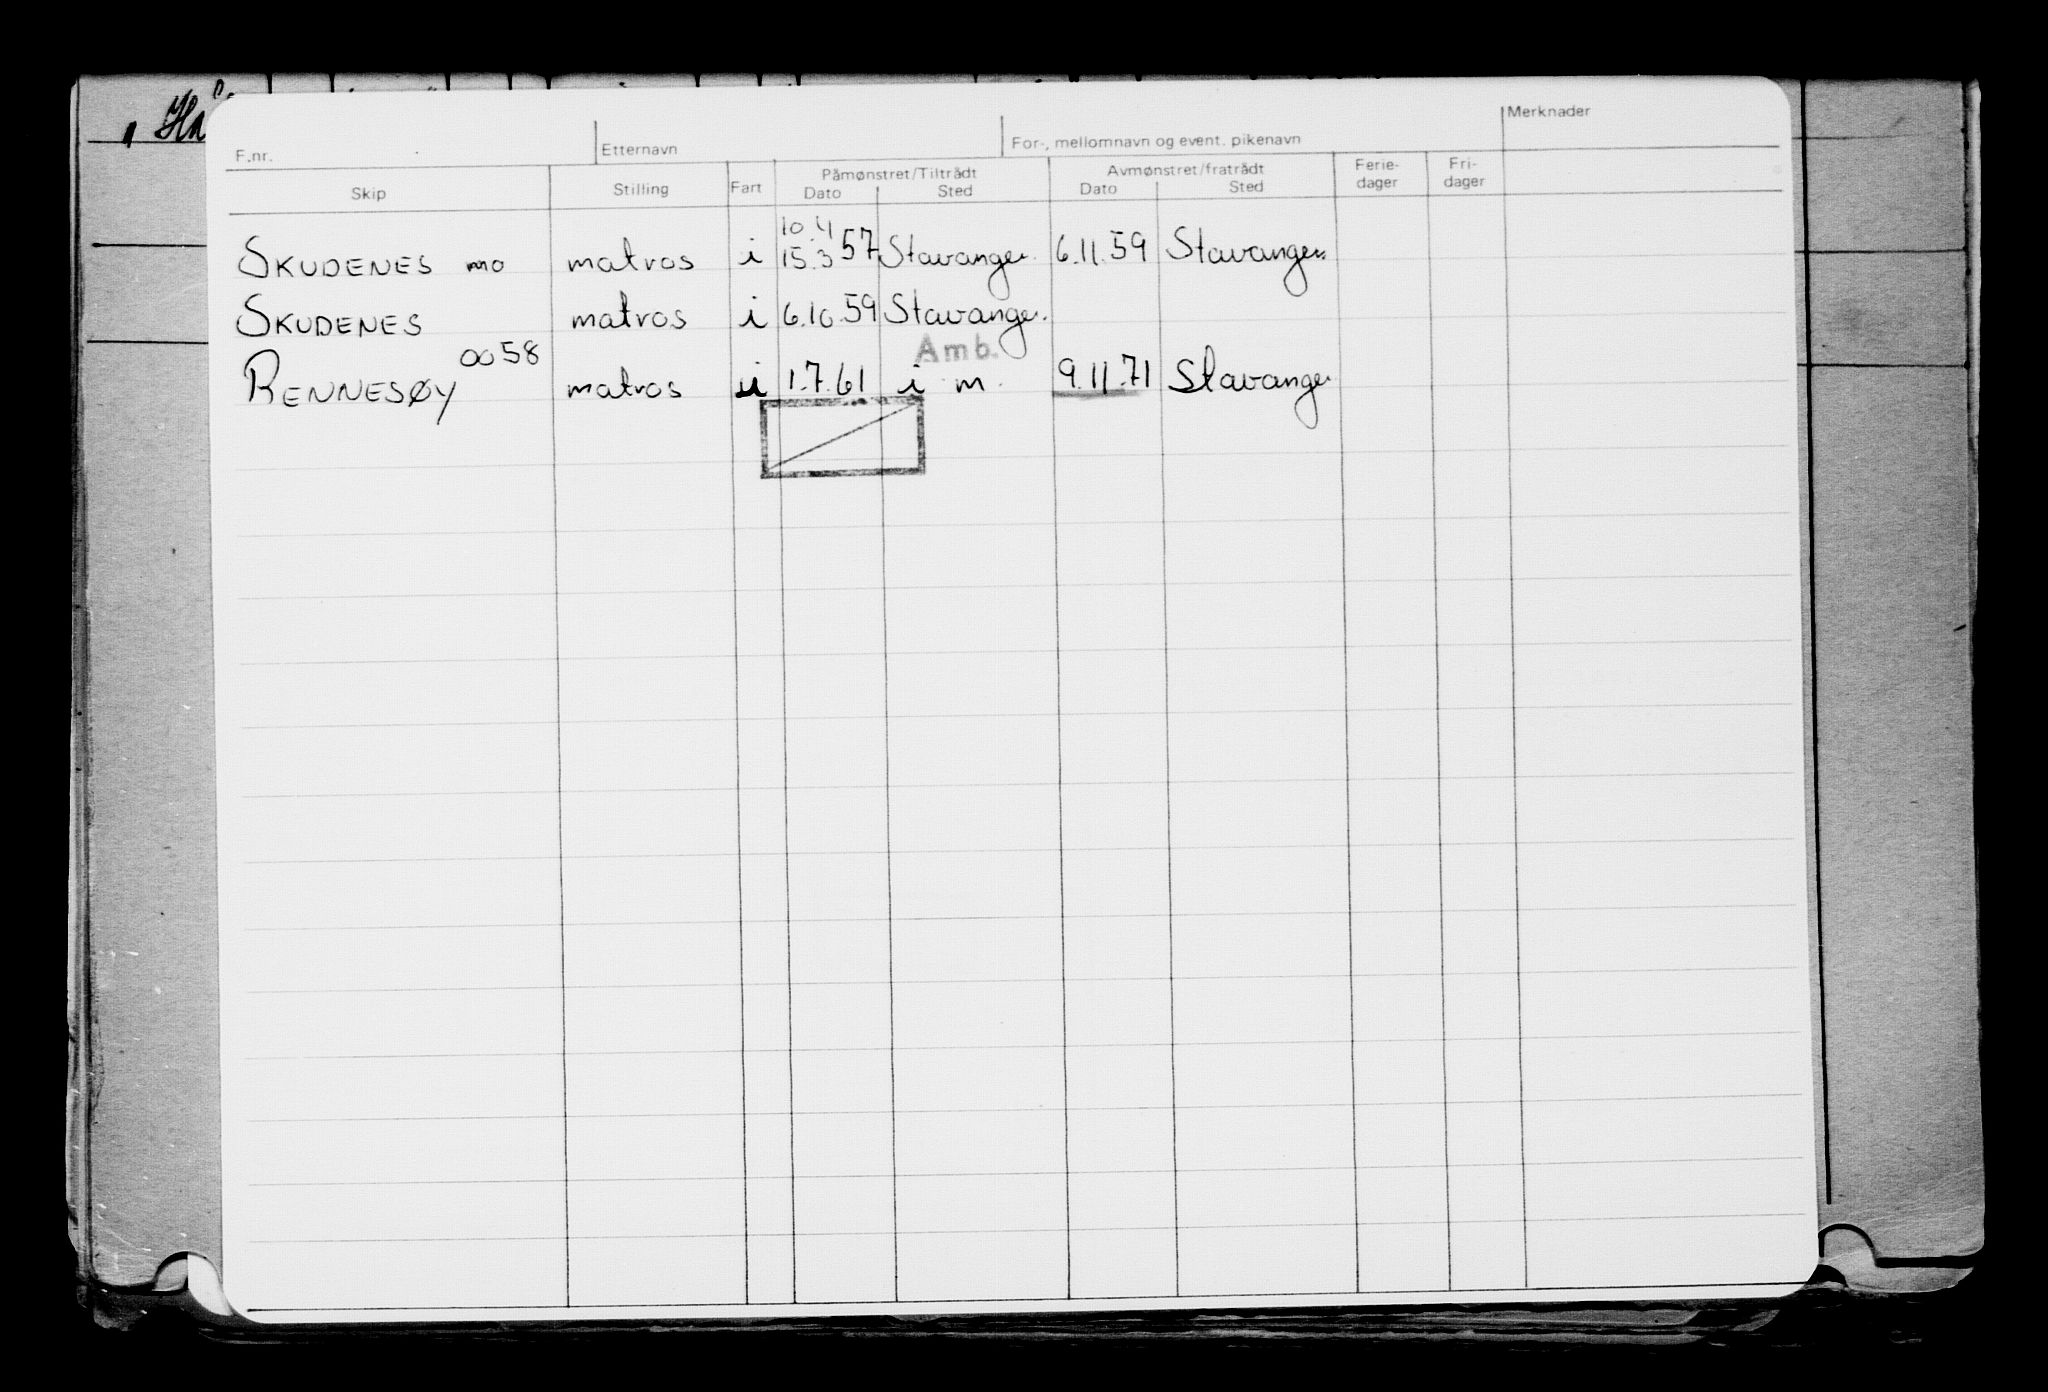 Merknader
F.nr. Etternavn For-, mellomnavn og event. pikenavn
Skip Stilling Fart Påmønstret/Tiltrådt Dato Sted Avmønstret/fratrådt Dato Sted Ferie-dager Fri-dager
10.4
SKUDENES mo matros i 15.3 57 Stavanger 6.11.59 Stavanger
SKUDENES matros i 6.10.59 Stavanger.
0058 Amb.
RENNESØY matros i 1.7.61 i m. 9.11.71 Stavanger